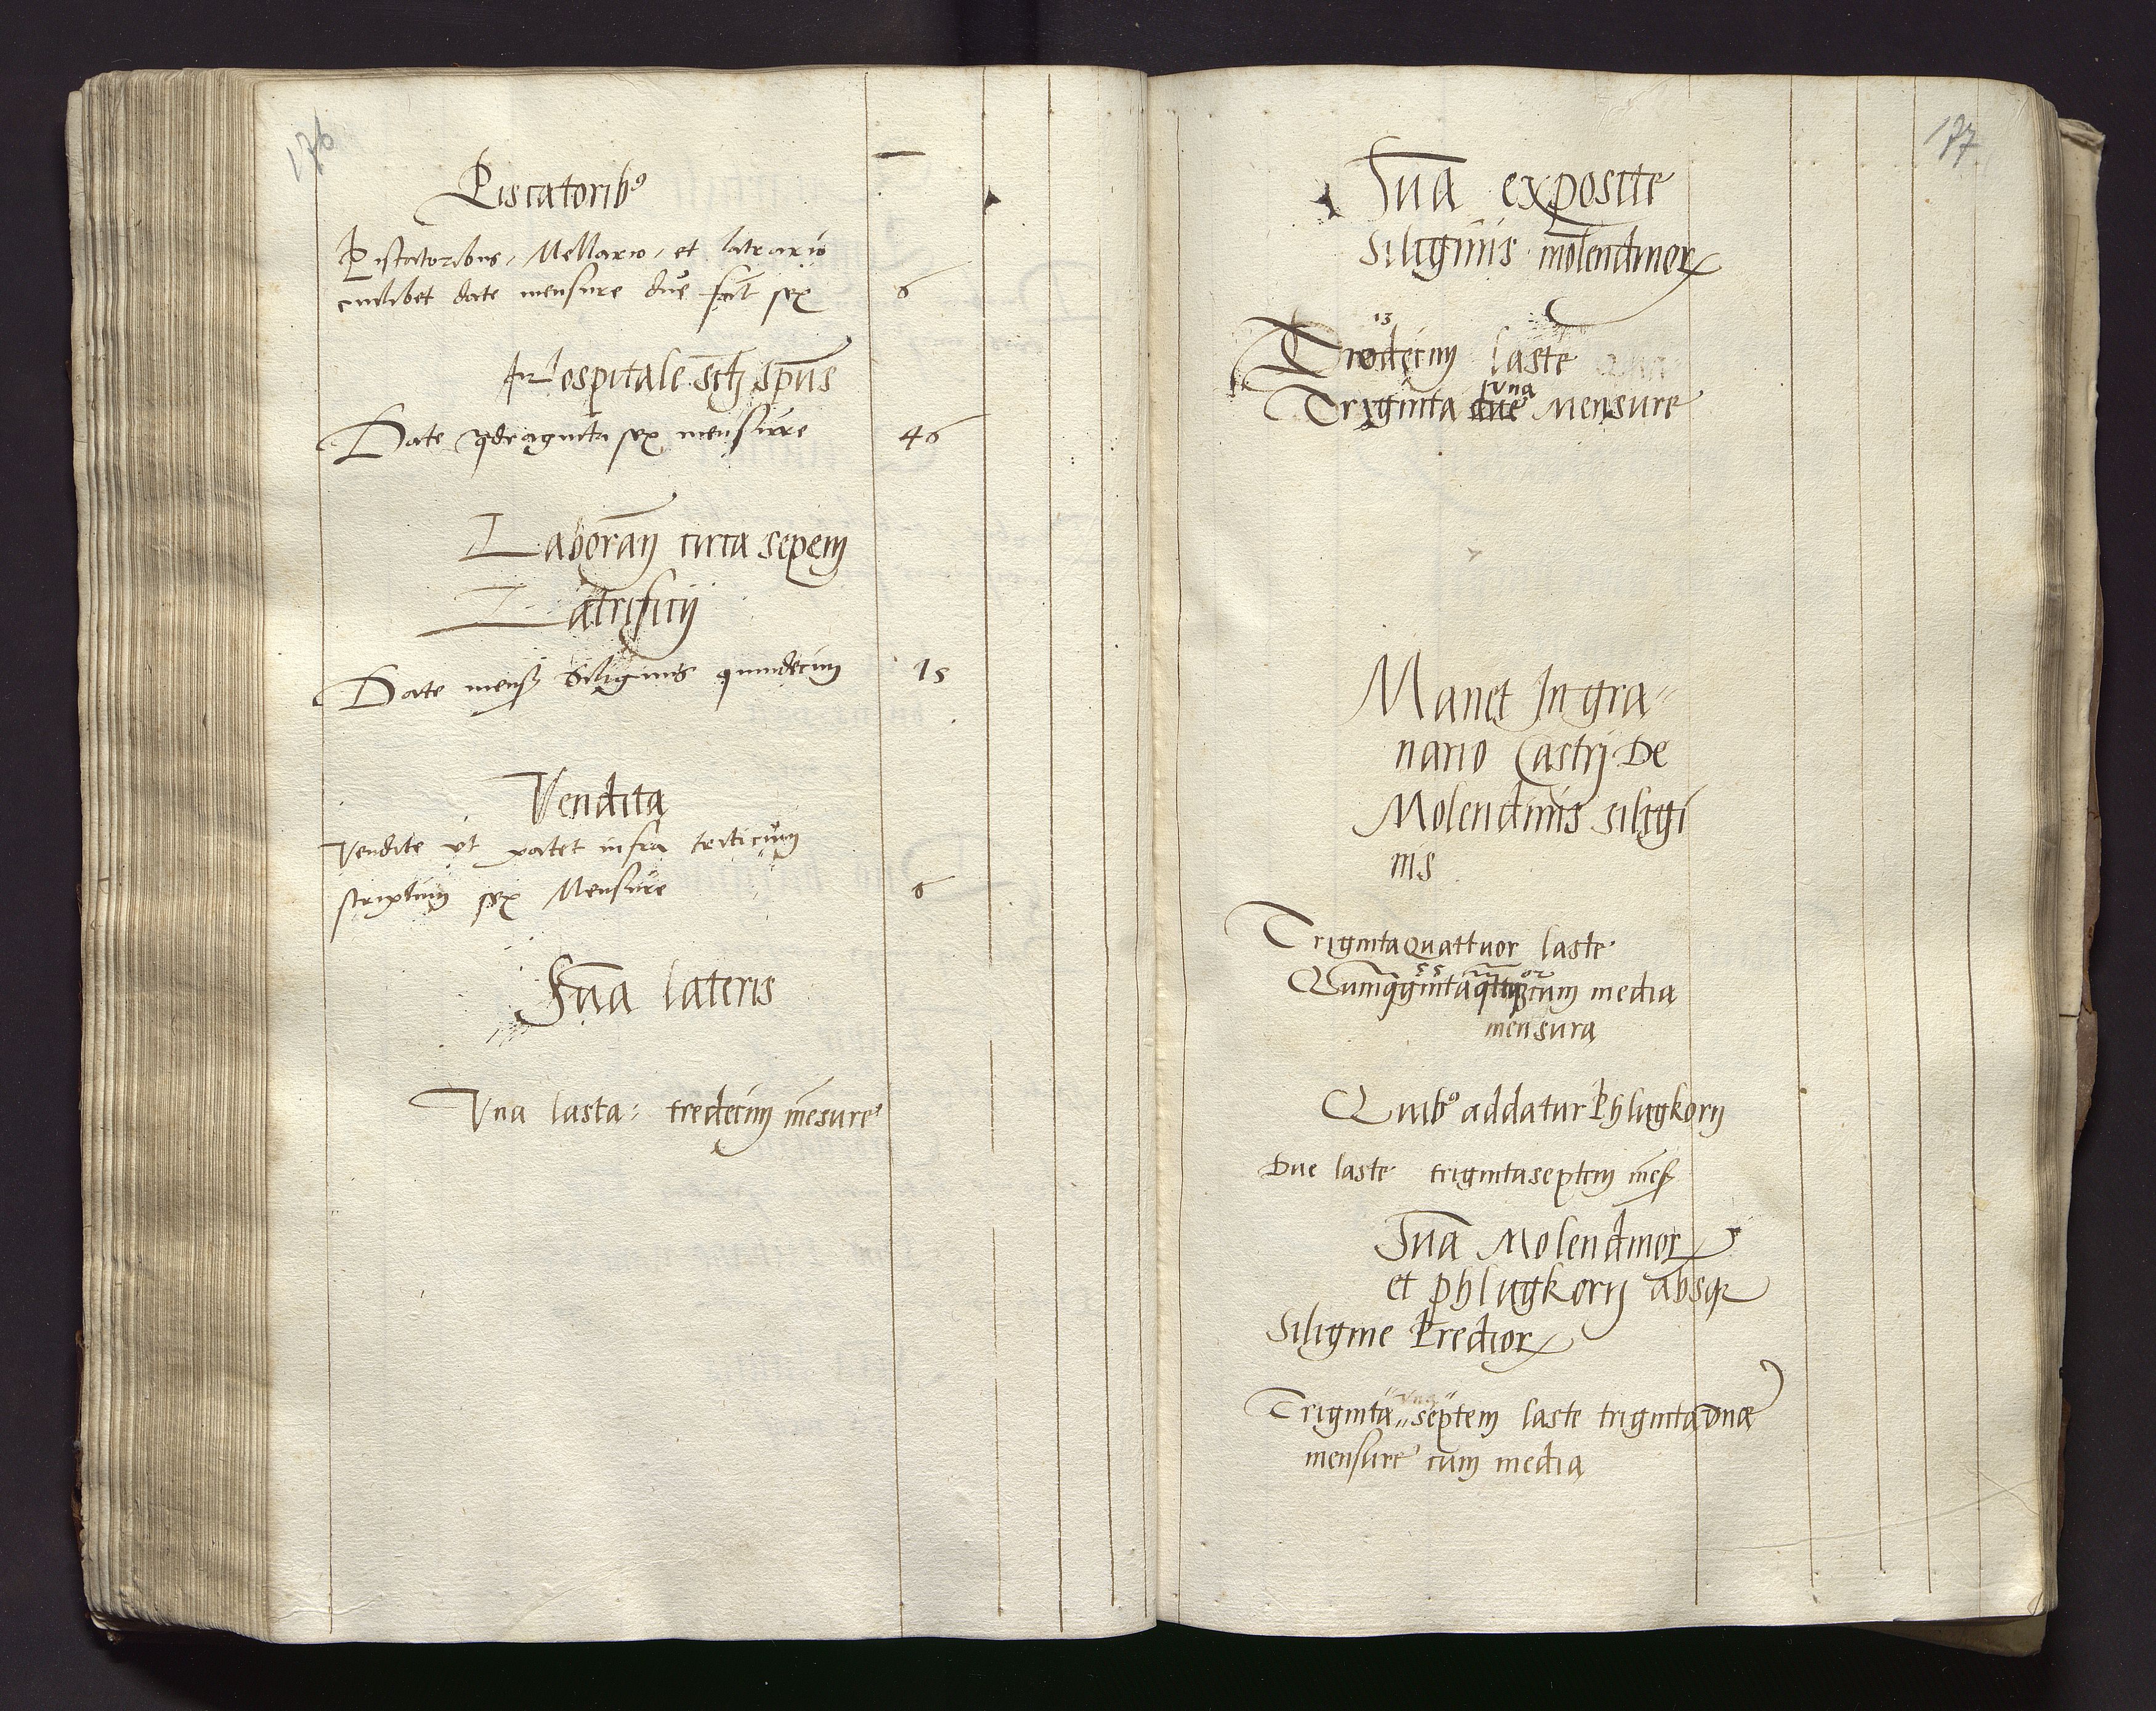 176
Piscatorib9
Piscatoribus, Mellario, et latrario
cuilibet date mensure due fat̄ sex 6
Hospitale sctj spūs
Date qdraginta sex mensure 46
Laboran̄ circa sepem
Latrificij
Date mens̄ siliginis quindecim 15
Vendita
Vendite vt patet infra triticum
scriptum sex Mensure 6
Sūa lateris
Vna lasta: tredecim mēsure
177
Sūa exposite
Siliginis molendinorꝝ
13
Tredecim laste
Triginta due vna Mensure
Manet In gra„
nario Castrj De
Molendinis siligi
nis
Triginta quattuor laste
55 or
cum media
mensura
Quib9 addatur Phlugkorn
Due laste triginta septem mēs̄
Sūa Molendinorꝝ
et phlugkorn absqꝫ
siligine Prediorꝝ
Triginta„ septem laste triginta vnā
mensure cum media